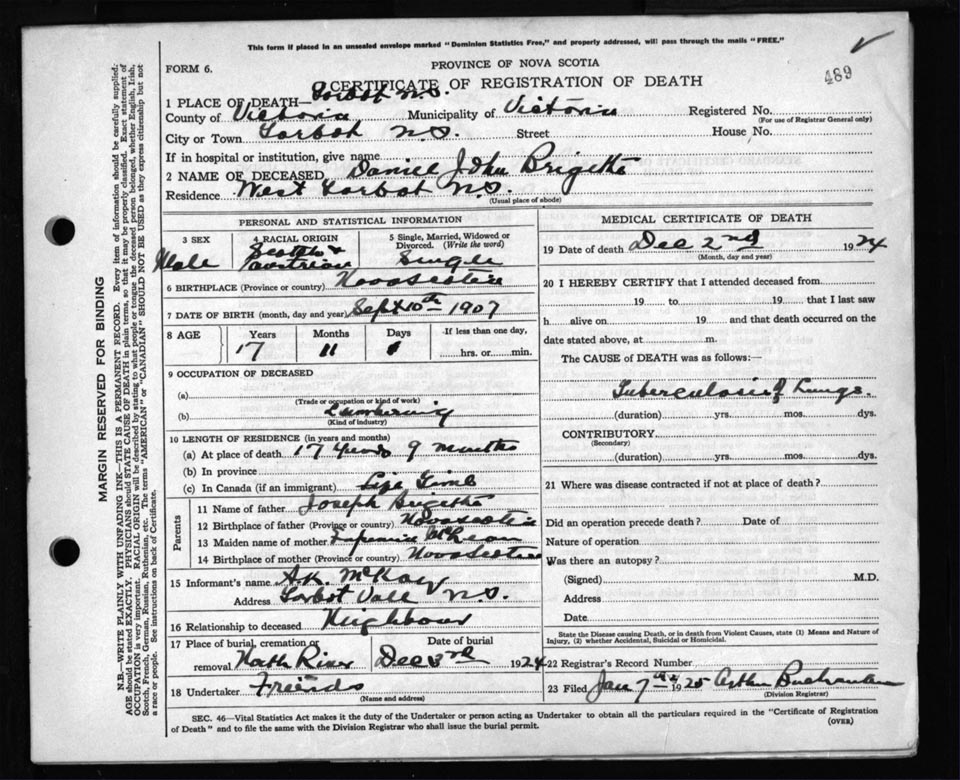 This form if placed in an unsealed envelope marked "Dominion Statistics Free," and properly addressed, will pass through the mails "FREE."
FORM 6.
PROVINCE OF NOVA SCOTIA
489
CERTIFICATE OF REGISTRATION OF DEATH
1 PLACE OF DEATH— Tarbot N.S.
County of Victoria Municipality of Victoria Registered No.
(For use of Registrar General only)
City or Town Tarbot N.S. Street House No.
If in hospital or institution, give name
2 NAME OF DECEASED Daniel John
Residence West Tarbot N.S.
(Usual place of abode)
PERSONAL AND STATISTICAL INFORMATION
3 SEX
Male
4 RACIAL ORIGIN
Scotch &
Austrian
5 Single, Married, Widowed or Divorced. (Write the word)
Single
6 BIRTHPLACE (Province or country) Nova Scotia
7 DATE OF BIRTH (month, day and year) Sept 10th 1907
8 AGE
Years Months Days If less than one day,
17 11 hrs. or min.
9 OCCUPATION OF DECEASED
(a)
(Trade or occupation or kind of work)
(b) Lumbering
(Kind of industry)
10 LENGTH OF RESIDENCE (in years and months)
(a) At place of death 17 years 9 months
(b) In province
(c) In Canada (if an immigrant) Life Time
Parents
11 Name of father Joseph
12 Birthplace of father (Province or country) Nova Scotia
13 Maiden name of mother McLean
14 Birthplace of mother (Province or country) Nova Scotia
15 Informant's name A.K. McKay
Address Tarbot Vale N.S.
16 Relationship to deceased Neighbour
17 Place of burial, cremation or removal North River
Date of burial
Dec 3rd 1924
18 Undertaker Friends
(Name and address)
MEDICAL CERTIFICATE OF DEATH
19 Date of death Dec 2nd 1924
(Month, day and year)
20 I HEREBY CERTIFY that I attended deceased from
19 to 19 that I last saw
h alive on 19 and that death occurred on the
date stated above, at m.
The CAUSE of DEATH was as follows:—
Tuberculosis of Lungs.
(duration) yrs. mos. dys.
CONTRIBUTORY
(Secondary)
(duration) yrs. mos. dys.
21 Where was disease contracted if not at place of death?
Did an operation precede death? Date of
Nature of operation
Was there an autopsy?
(Signed) M.D.
Address
Date
State the Disease causing Death, or in death from Violent Causes, state (1) Means and Nature of
Injury, (2) whether Accidental, Suicidal or Homicidal.
22 Registrar's Record Number
23 Filed Jan 7th 1925 Arthur Buchanan
(Division Registrar)
SEC. 46—Vital Statistics Act makes it the duty of the Undertaker or person acting as Undertaker to obtain all the particulars required in the "Certificate of Registration
of Death" and to file the same with the Division Registrar who shall issue the burial permit.
(OVER)
MARGIN RESERVED FOR BINDING
N.B.—WRITE PLAINLY WITH UNFADING INK—THIS IS A PERMANENT RECORD. Every item of information should be carefully supplied.
AGE should be stated EXACTLY. PHYSICIANS should state CAUSE OF DEATH in plain terms, so that it may be properly classified. Exact statement of
OCCUPATION is very important. RACIAL ORIGIN will be described by stating to what people or tongue the deceased person belonged, whether English, Irish,
Scotch, French, German, Russian, Ruthenian, etc. The terms "AMERICAN" or "CANADIAN" SHOULD NOT BE USED as they express citizenship but not
a race or people. See instructions on back of Certificate.